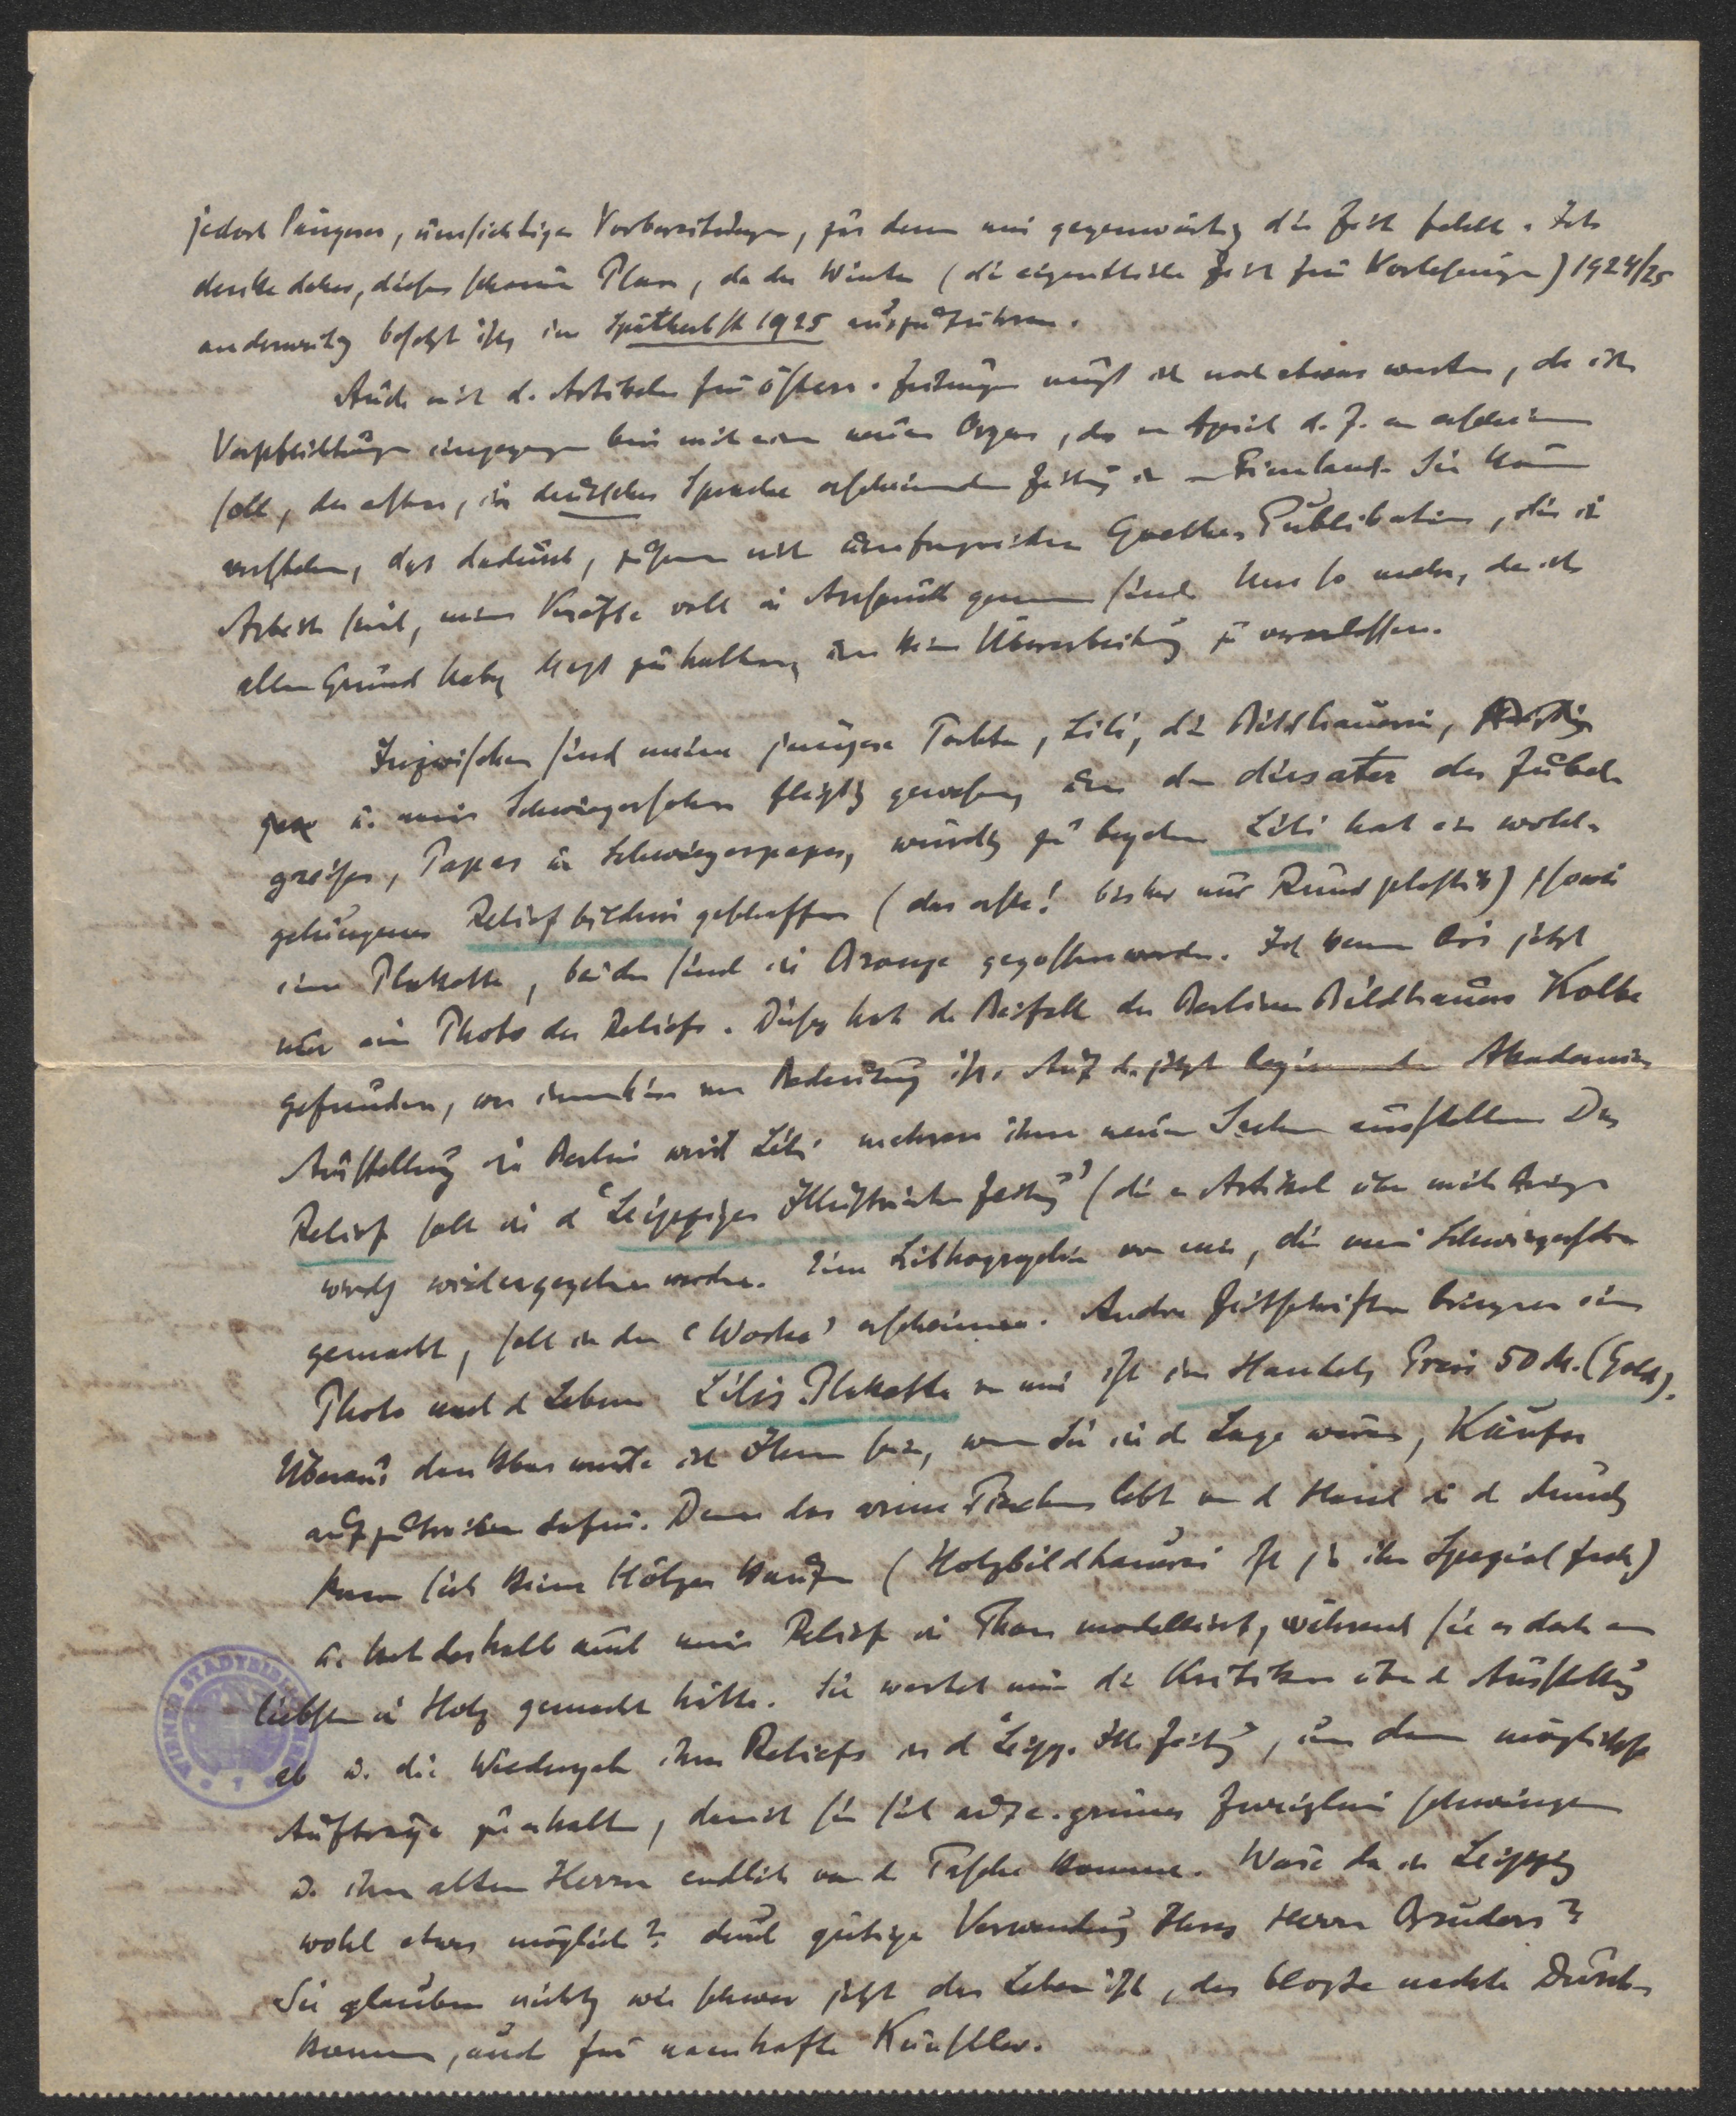 jedoch längerer, umsichtiger Vorbereitungen, für deren mir gegenwärtig die Zeit fehlt. Ich
denke daher, diesen schönen Plan, da der Winter (die eigentliche Zeit für Vorlesungen) 1924/25
anderweitig besetzt ist, im Spätherbst 1925 auszuführen.
Auch mit d. Artikeln für österr. Zeitungen muß ich noch etwas warten, da ich
Verpflichtungen eingegangen bin mit einem neuen Organ, das im April d. J. an erscheinen
soll, der ersten, in deutscher Sprache erscheinenden Zeitung in Finnland. Sie können
verstehen, daß dadurch, zusammen mit umfangreichen Goethe-Publikationen, die in
Arbeit sind, meine Kräfte voll in Anspruch genommen sind. Um so mehr, da ich
allen Grund habe, Maß zu halten, um keine Überarbeitung zu veranlassen.
Inzwischen sind meine jüngere Tochter, Lili, die Bildhauerin,
u. mein Schwiegersohn fleißig gewesen, um den dies ater des Jubel-
greises, Papas u. Schwiegerpapas, würdig zu begehen. Lili hat ein wohl-
gelungenes Reliefbildnis geschaffen (das erste! bisher nur Rundplastik) sowie
eine Plakette, beide sind in Bronze gegossen worden. Ich kenne bis jetzt
nur ein Photo des Reliefs. Dieses hat den Beifall des Berliner Bildhauers Kolbe
gefunden, was immerhin von Bedeutung ist. Auf der jetzt beginnenden Akademie-
Ausstellung in Berlin wird Lili mehrere ihrer neuen Sachen ausstellen. Das
Relief soll in d. "Leipziger Illustrierten Zeitung" (die e. Artikel über mich bringen
wird) wiedergegeben werden. Eine Lithographie von mir, die mein Schwiegersohn
gemacht, soll in der "Woche" erscheinen. Andre Zeitschriften bringen ein
Photo nach d. Leben. Lilis Plakette von mir ist im Handel, Preis 50 M. (Gold).
Überaus dankbar würde ich Ihnen sein, wenn Sie in d. Lage wären, Käufer
aufzutreiben dafür. Denn das arme lebt von d. Hand in d. Mund,
kann sich keine Hölzer kaufen (Holzbildhauerei ist ja ihr Spezialfach)
u. hat deshalb auch mein Relief in Thon modelliert, während sie es doch am
liebsten in Holz gemacht hätte. Sie wartet nun die Kritiken über d. Ausstellung
ab u. die Wiedergabe ihres Reliefs in d. "Leipz. Ill. Zeitung", um dann möglichst
Aufträge zu erhalten, damit sie sich auf e. grünes Zweiglein schwinge
u. ihrem alten Herrn endlich von d. Tasche komme. Wäre da in Leipzig
wohl etwas möglich? durch gütige Verwendung Ihres Herrn Bruders?
Sie glauben nicht, wie schwer jetzt das Leben ist, das bloße nackte Durch-
kommen, auch für namhafte Künstler.
WIENER STADTBIBLIOTHEK